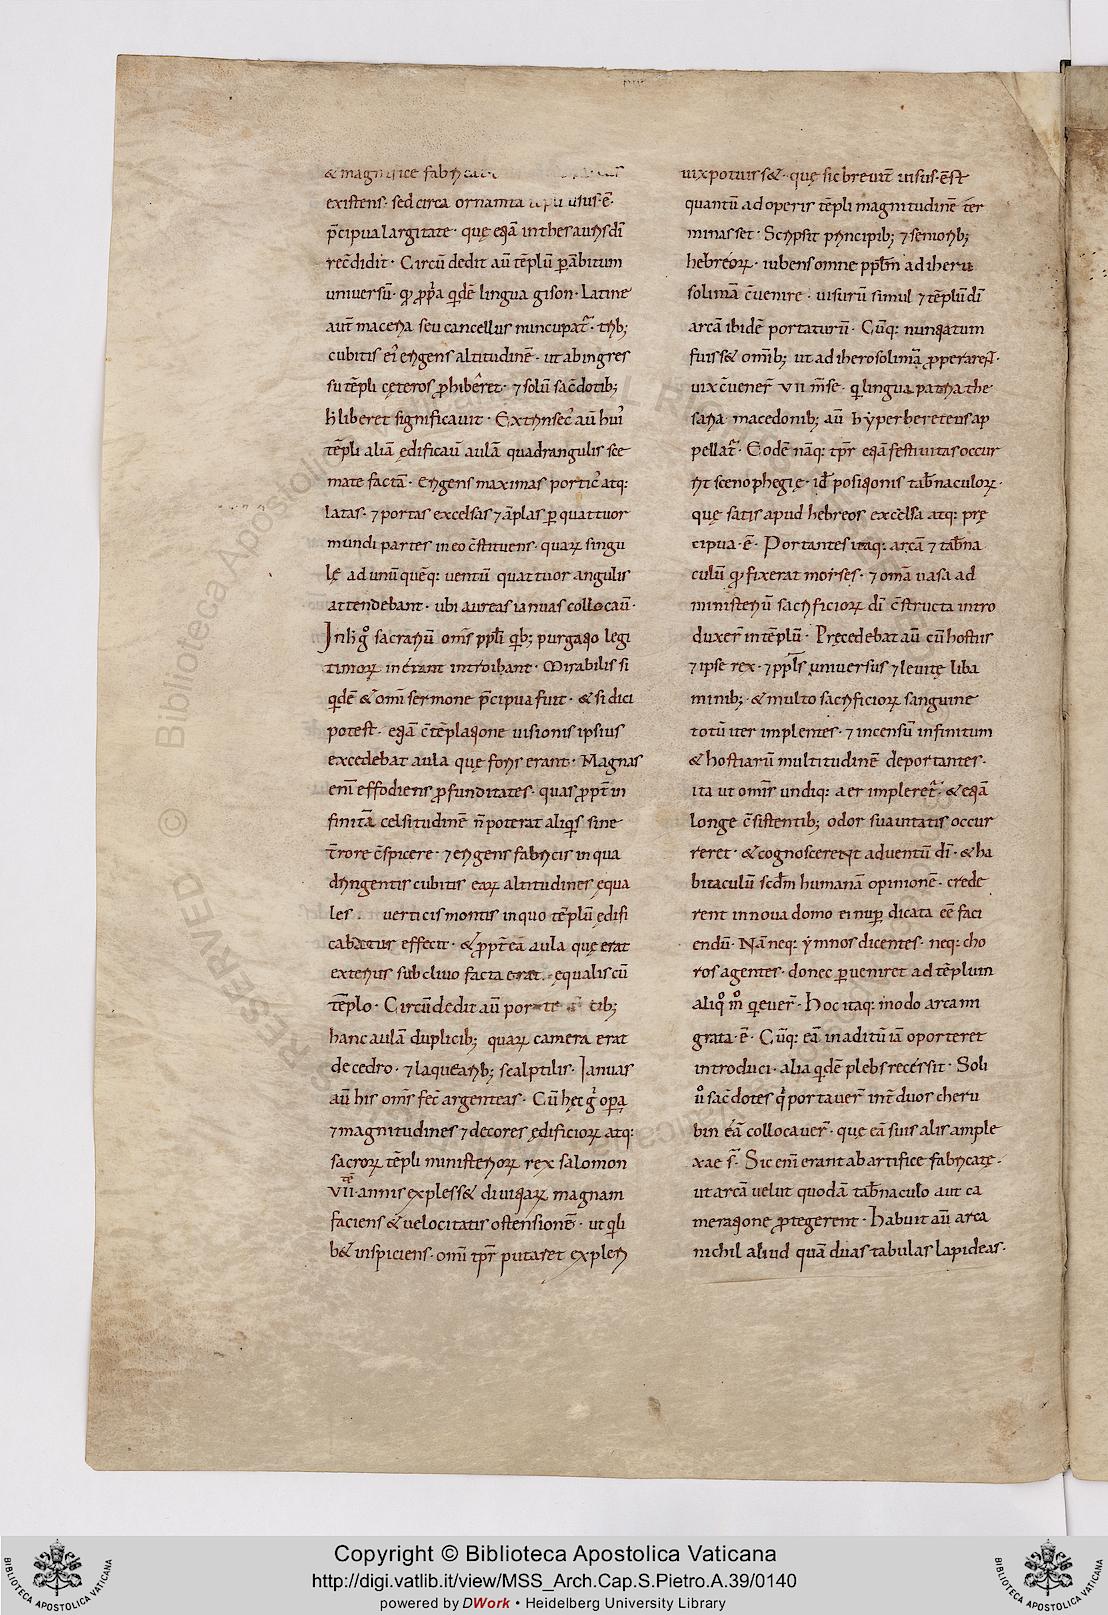 & magnifice
existens· sed circa ornamta usus·ē·
p̄cipua largitate· quę eqā in thesauris dī
rec̄didit· Circū dedit aū tēplū ꝑ ābitum
universū· qđ ꝓpa qidē lingua gison· Latine
aut̄ maceria seu cancellus nuncupat᷑· trib;
cubitis ei᾽ erigens altitudinē· ut ab ingres
su tēpli cęteros ꝓhibêret· ⁊ solū sac̄dotib;
h̄ liberet significavit· Extrinsec᾽ aū hui᾽
tēpli aliā ędificaū aulā quadrangulis sce
mate factā· Erigens maximas portic᾽ atq:
latas· ⁊ portas excelsas ⁊ āplas ꝑ quattuor
mundi partes in eo c̄stituens· quaꝝ singu
lę ad unū quēq: ventū quattuor angulis
attendebant· ubi aureas ianuas collocaū·
In h̄ g͛ sacrariū om̄s pp̄li qib; purgatio legi
timoꝝ inerant introibant· Mirabilis si
qidē & om̄i sermone p̄cipua fuit· & si dici
potest· eqā c̄tēplatione visionis ipsius
excedebat aula quę foris erant· Magnas
enī effodiens ꝓfunditates· quas ꝓpt̄ in
finitā celsitudinē n̄ poterat aliqis sine
t̄rore c̄spicere· ⁊ erigens fabricis in qua
dringentis cubitis eaꝝ altitudines ęqua
les verticis montis in quo tēplū ędifi
cabatur effecit· & ꝓpt̄ eā aula quę erat
exterius sub clivo facta erat· ęqualis cū
tēplo· Circūdedit aū tib;
hanc aulā duplicib; quaꝝ camera erat
de cedro· ⁊ laquearib; scalptilis· Ianuas
aū his om̄s fec̄ argenteas· Cū hęc g͛ opa
⁊ magnitudines ⁊ decores ędificioꝝ atq:
sacroꝝ tēpli ministerioꝝ rex salomon
VII· annis expless& divitiaꝝ magnam
faciens & velocitatis ostensionē· ut qli
b& inspiciens· om̄i tp̄r putaret expleri
vix potuiss&· quę sic breuit̄ visus· ēst
quantū ad operis tēpli magnitudinē ter
minasset· Scripsit principib; ⁊ seniorib;
hebreoꝝ· iubens omne pp̄lm̄ ad iheru
solimā c̄venire· visurū simul ⁊ tēplū dī
arcā ibidē portaturū· Cūq: nuntiatum
fuiss& om̄ib; ut ad iherosolimā ꝓperarent·
vix c̄vener̄ VII m̄se· q lingua patria the
sara macedonib; aū hẏperbereteus ap
pellat᷑· Eodē nāq: tp̄r eqā festivitas occur
rit scenophegię· id̄ positionis tab̄naculoꝝ·
quę satis apud hebreos excelsa atq: prę
cipua·ē· Portantes itaq: arcā ⁊ tab̄na
culū qđ fixerat moises· ⁊ om̄a vasa ad
ministeriū sacrificioꝝ dī c̄structa intro
duxer̄ in tēplū· Pręcedebat aū cū hostiis
⁊ ipse rex· ⁊ pp̄ls universus ⁊ levitę liba
minib; & multo sacrificioꝝ sanguine
totū iter implentes· ⁊ incensū infinitum
& hostiarū multitudinē deportantes·
ita ut om̄is undiq: aer impleret᷑· & eqā
longe c̄sistentib; odor suavitatis occur
reret· & cognoscerent adventū dī· & ha
bitaculū scdm̄ humanā opinionē· crede
rent in nova domo ei nuꝑ dicata eē faci
endū· Nā neq: ẏmnos dicentes· neq: cho
ros agentes· donec ꝑveniret ad tēplum
aliqͦ mͦ qiever̄· Hoc itaq: modo arca mi
grata·ē· Cūq: eā in aditū iā oporteret
introduci· alia qidē plebs recessit· Soli
ů sac̄dotes qi portaver̄ int̄ duos cheru
bin eā collocaver̄· quę eā suis alis ample
xae s̄· Sic enī erant ab artifice fabricatę·
ut arcā velut quodā tab̄naculo aut ca
meratione ꝓtegerent· Habuit aū arca
nichil aliud quā duas tabulas lapideas·
Copyright © Biblioteca Apostolica Vaticana
http://digi.vatlib.it/view/MSS_Arch.Cap.S.Pietro.A.39/0140
powered by DWork • Heidelberg University Library